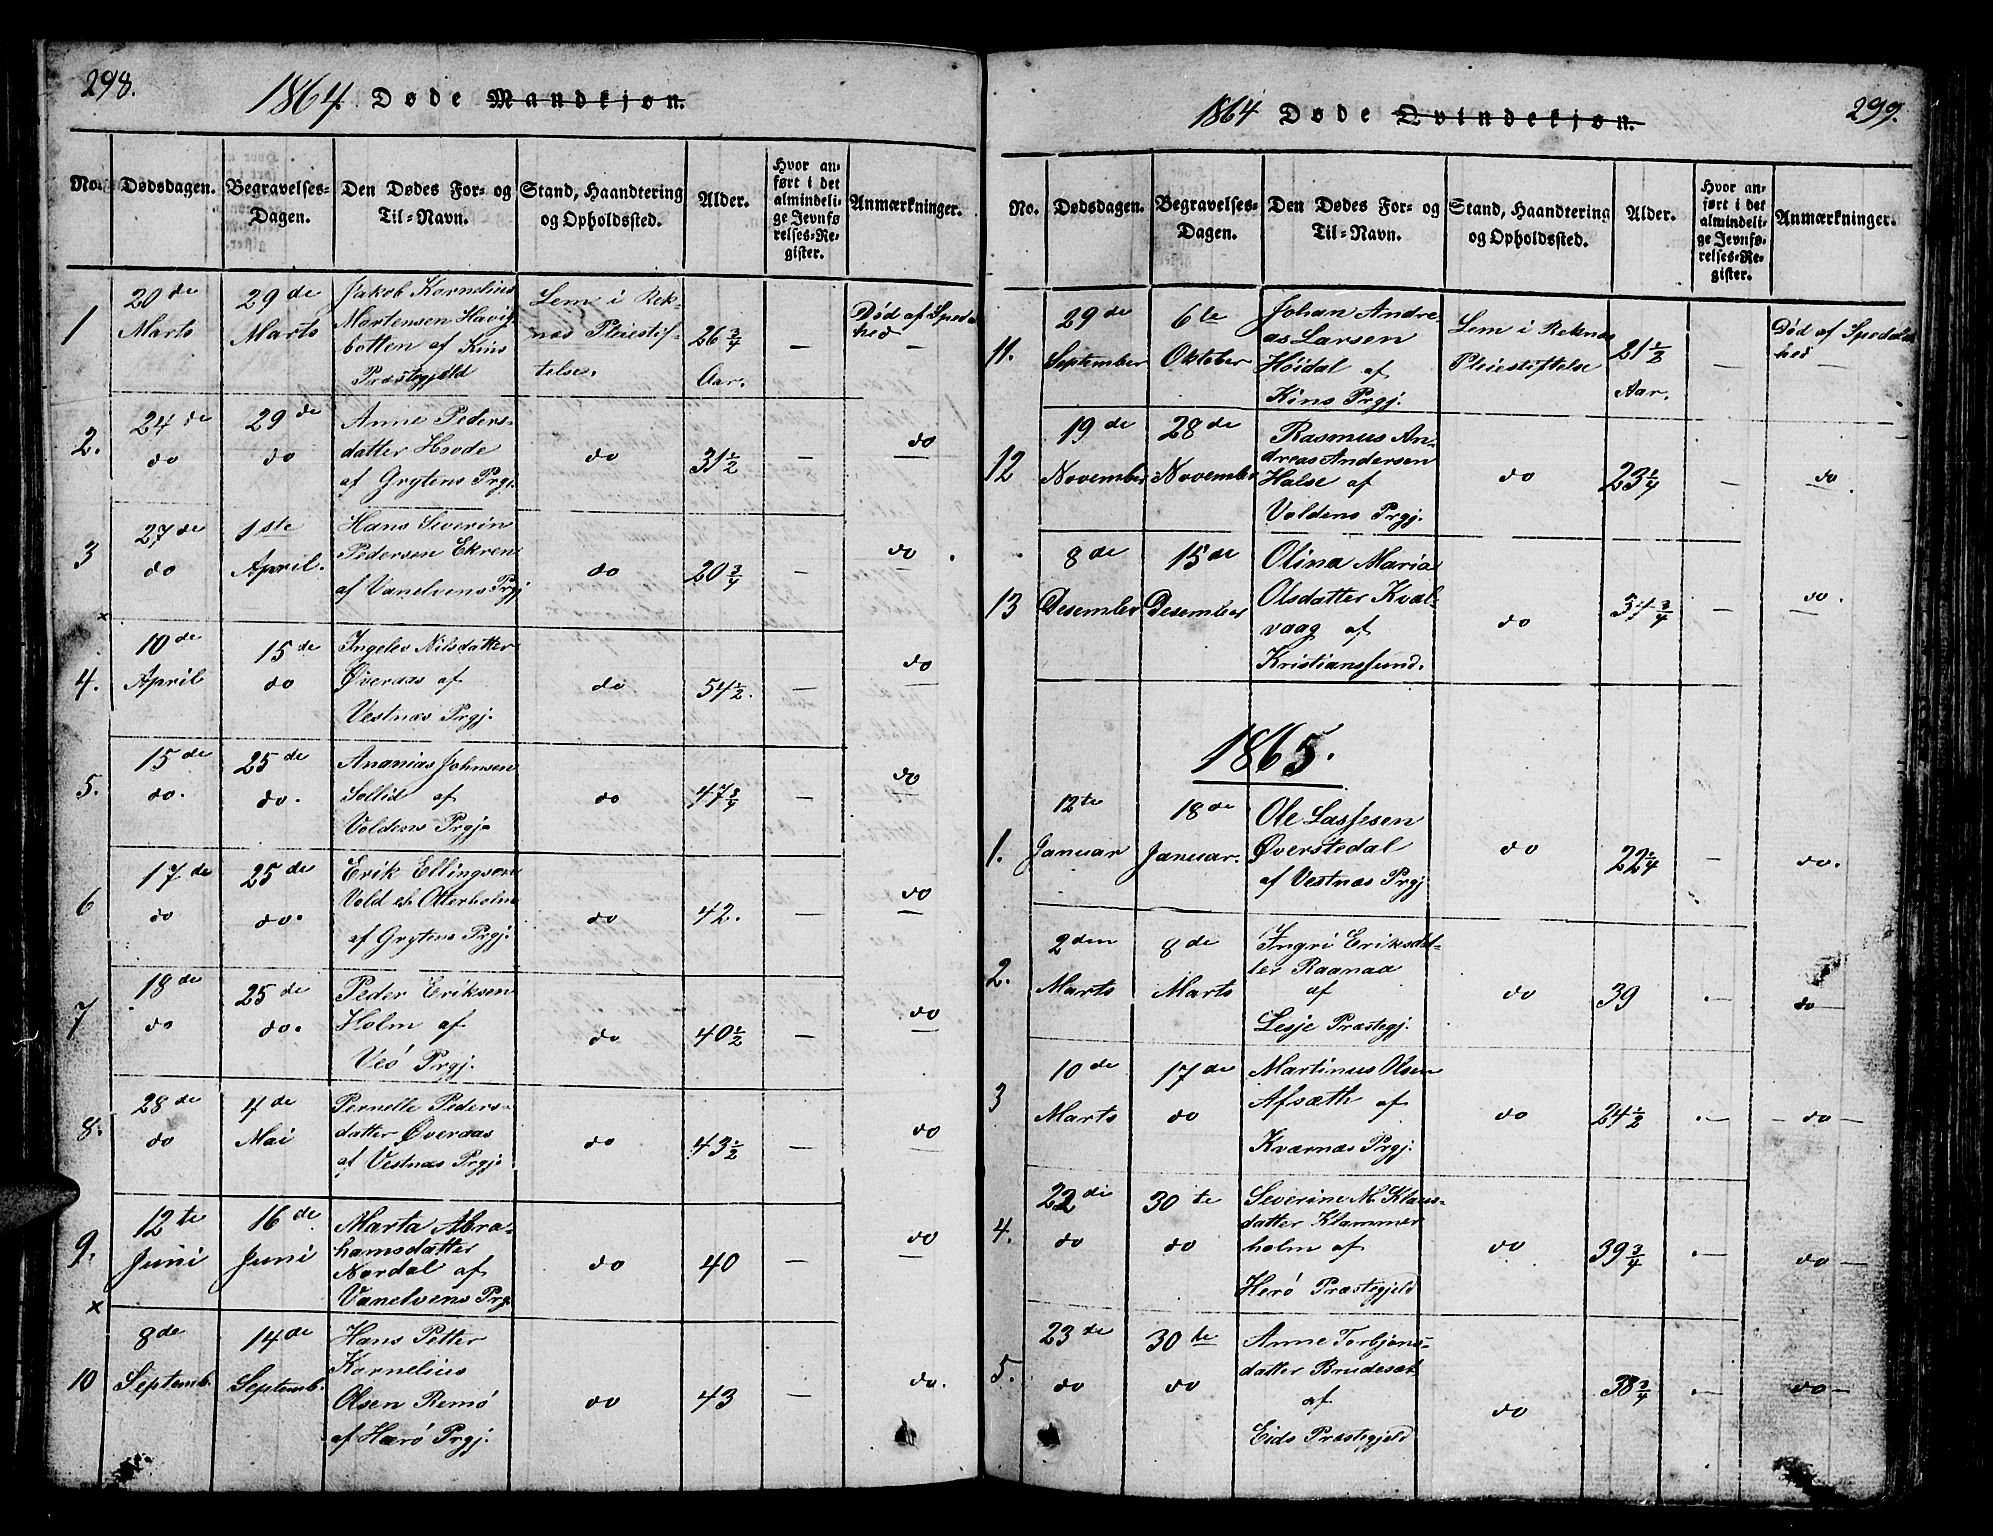 298.
1864 Døde Mandkjøn.
No. Dødsdagen. Begravelses-Dagen. Den Dødes For- og Til-Navn. Stand, Haandtering og Opholdssted. Alder. Hvor anført i det almindelige Jevnførelses-Register. Anmærkninger.
1 20de Marts 29de Marts Jakob Kornelius
Mortensen Havig-
botten af Kins
Præstegjeld Lem i Rek-
næs Pleiestif-
telse. 26 3/4 Aar. — Død af Spedalhed —
2. 24de do 29de do Anne Peders-
datter Hovde
af Grytens Prgj. do 31 1/2 — do
3 27de do 1ste April. Hans Severin
Pedersen Ekren
af Vanelvens Prgj do 20 3/4 — do
x
4. 10de April 15de do Ingelev Nilsdatter
Øveraas af
Vestnæs Prgj. do 54 1/2. — do
5. 15de do. 25de do. Ananias Johnsen
Sollid af
Voldens Prgj. do 47 3/4 — do
6 17de do 25de do. Erik Ellingsen
Vold el. Otterholm
af Grytens Prgj. do 42. — do
7 18de do 25de do. Peder Eriksen
Holm af
Veø Prgj. do 40 1/2 — do
8. 28de do 4de Mai Pernelle Peders-
datter Øveraas
af Vestnæs Prgj. do 43 1/2 — do
9. 12te Juni 16de Juni Marta Abra-
hamsdatter
Nordal af
Vanelvens Prg. do 40 — do
x
10 8de Septemb. 14de Septemb. Hans Petter
Kornelius
Olsen Remø
af Herø Prgj. do 43 — do.
1864 Døde Qvindekjøn.
299.
No. Dødsdagen. Begravelses-Dagen. Den Dødes For- og Til-Navn. Stand, Haandtering og Opholdssted. Alder. Hvor anført i det almindelige Jevnførelses-Register. Anmærkninger.
11. 29de September 6te Oktober Johan Andre-
as Larsen
Høidal af
Kins Prgj. Lem i Reknæs
Pleiestiftelse 21 1/2 Aar. — Død af Spedalhed —
12 19de November 28de November Rasmus An-
dreas Andersen
Halse af
Voldens Prgj. do 23 1/4 — do.
13 8de Desember 15de Desember Olina Maria
Olsdatter Kval-
vaag af
Kristianssund. do 34 3/4 — do.
1865.
1. 12te Januar 18de Januar. Ole Lassesen
Øverstedal
af Vestnæs Prgj do 22 1/4 — do.
2. 2den Marts 8de Marts Ingri Eriksdat-
ter Raanaa
af
Lesje Præstegj. do 39 — do —
3 10de Marts 17de do Martinus Olsen
Afsæth af
Kværnæs Prgj. do 24 1/2 — — do —
4. 22de do 30te do Severine M. Klaus-
datter Klammer
holm af
Herø Præstegjeld do 39 3/4 — do —
5. 23de do 30te do Anne Torbjøns-
datter Brudesæt
af
Eids Præstegjeld do 38 3/4 — do —